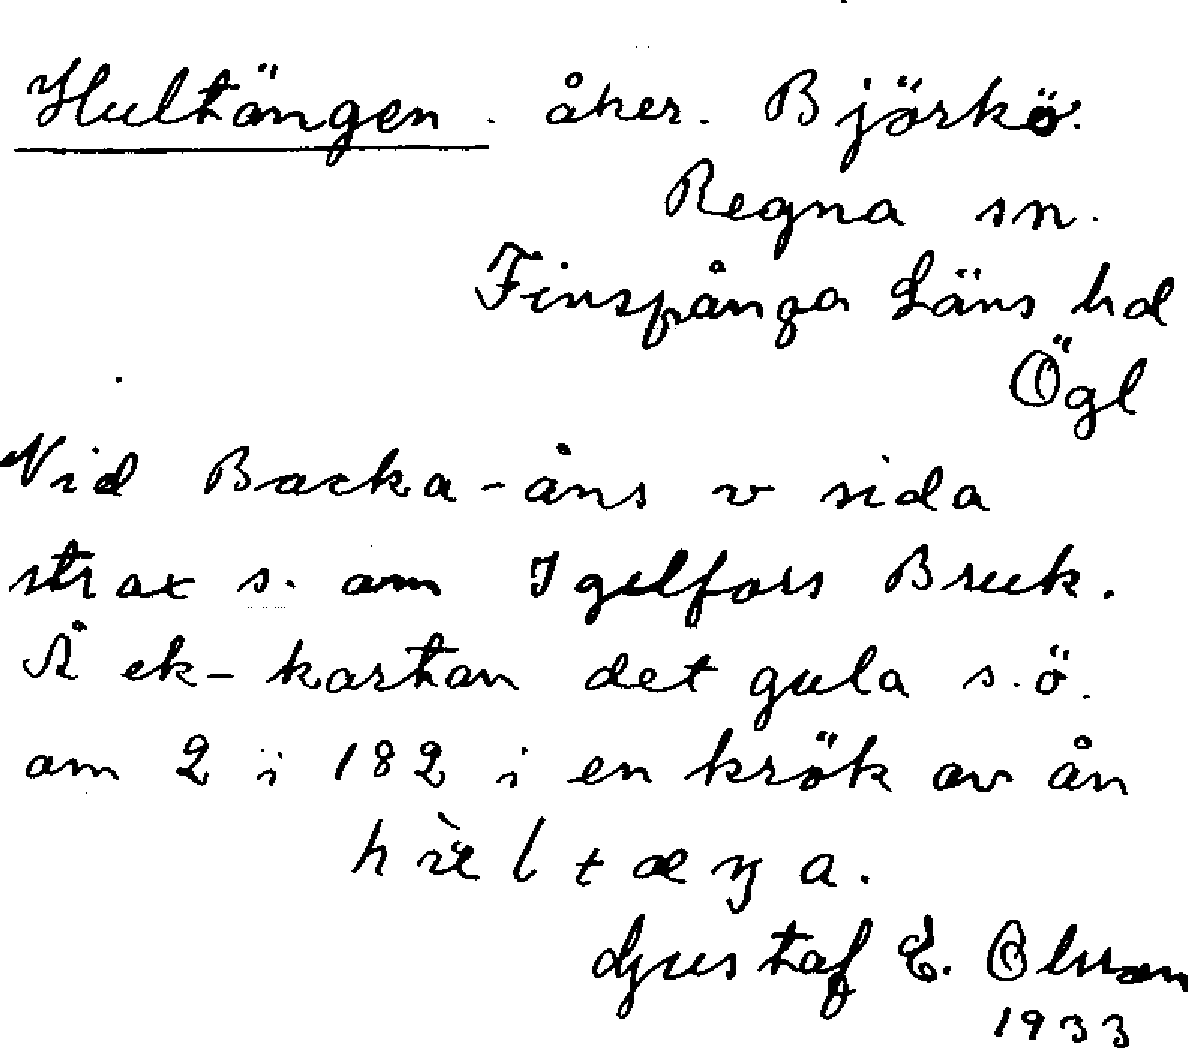 Hultängen. åker. Björkö.
Regna sn.
Finspånga Läns hd
Ögl
Vid Backa-åns v sida
strax s. om Igelfors Bruk.
Å ek-kartan det gula s.ö.
om 2 i 182 i en krök av ån
Gustaf E. Olsson
1933